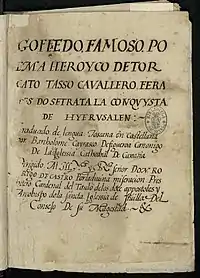 GOFFEDO, FAMOSO, PO
EMA HEROYCO DE TOR
CATO TASSO CAVALLERO, FERA
RES DO SE TRATA LA CONQVYSTA
DE HYERVSALEN:
traduzido de lengua Toscana en Castellana
por Bartholome Cayrasco De figueroa Canonigo
De la Iglesia Cathedral De Canaria
Dirigido Al Ill y R señor DON RO
DRIGO DE CASTRO Por la diuina miseracion Pres
bytero Cardenal del Titulo delos doze apostoles y
Arçobispo de la sancta Iglesia de Seuilla Del
Consejo De Su Magestad